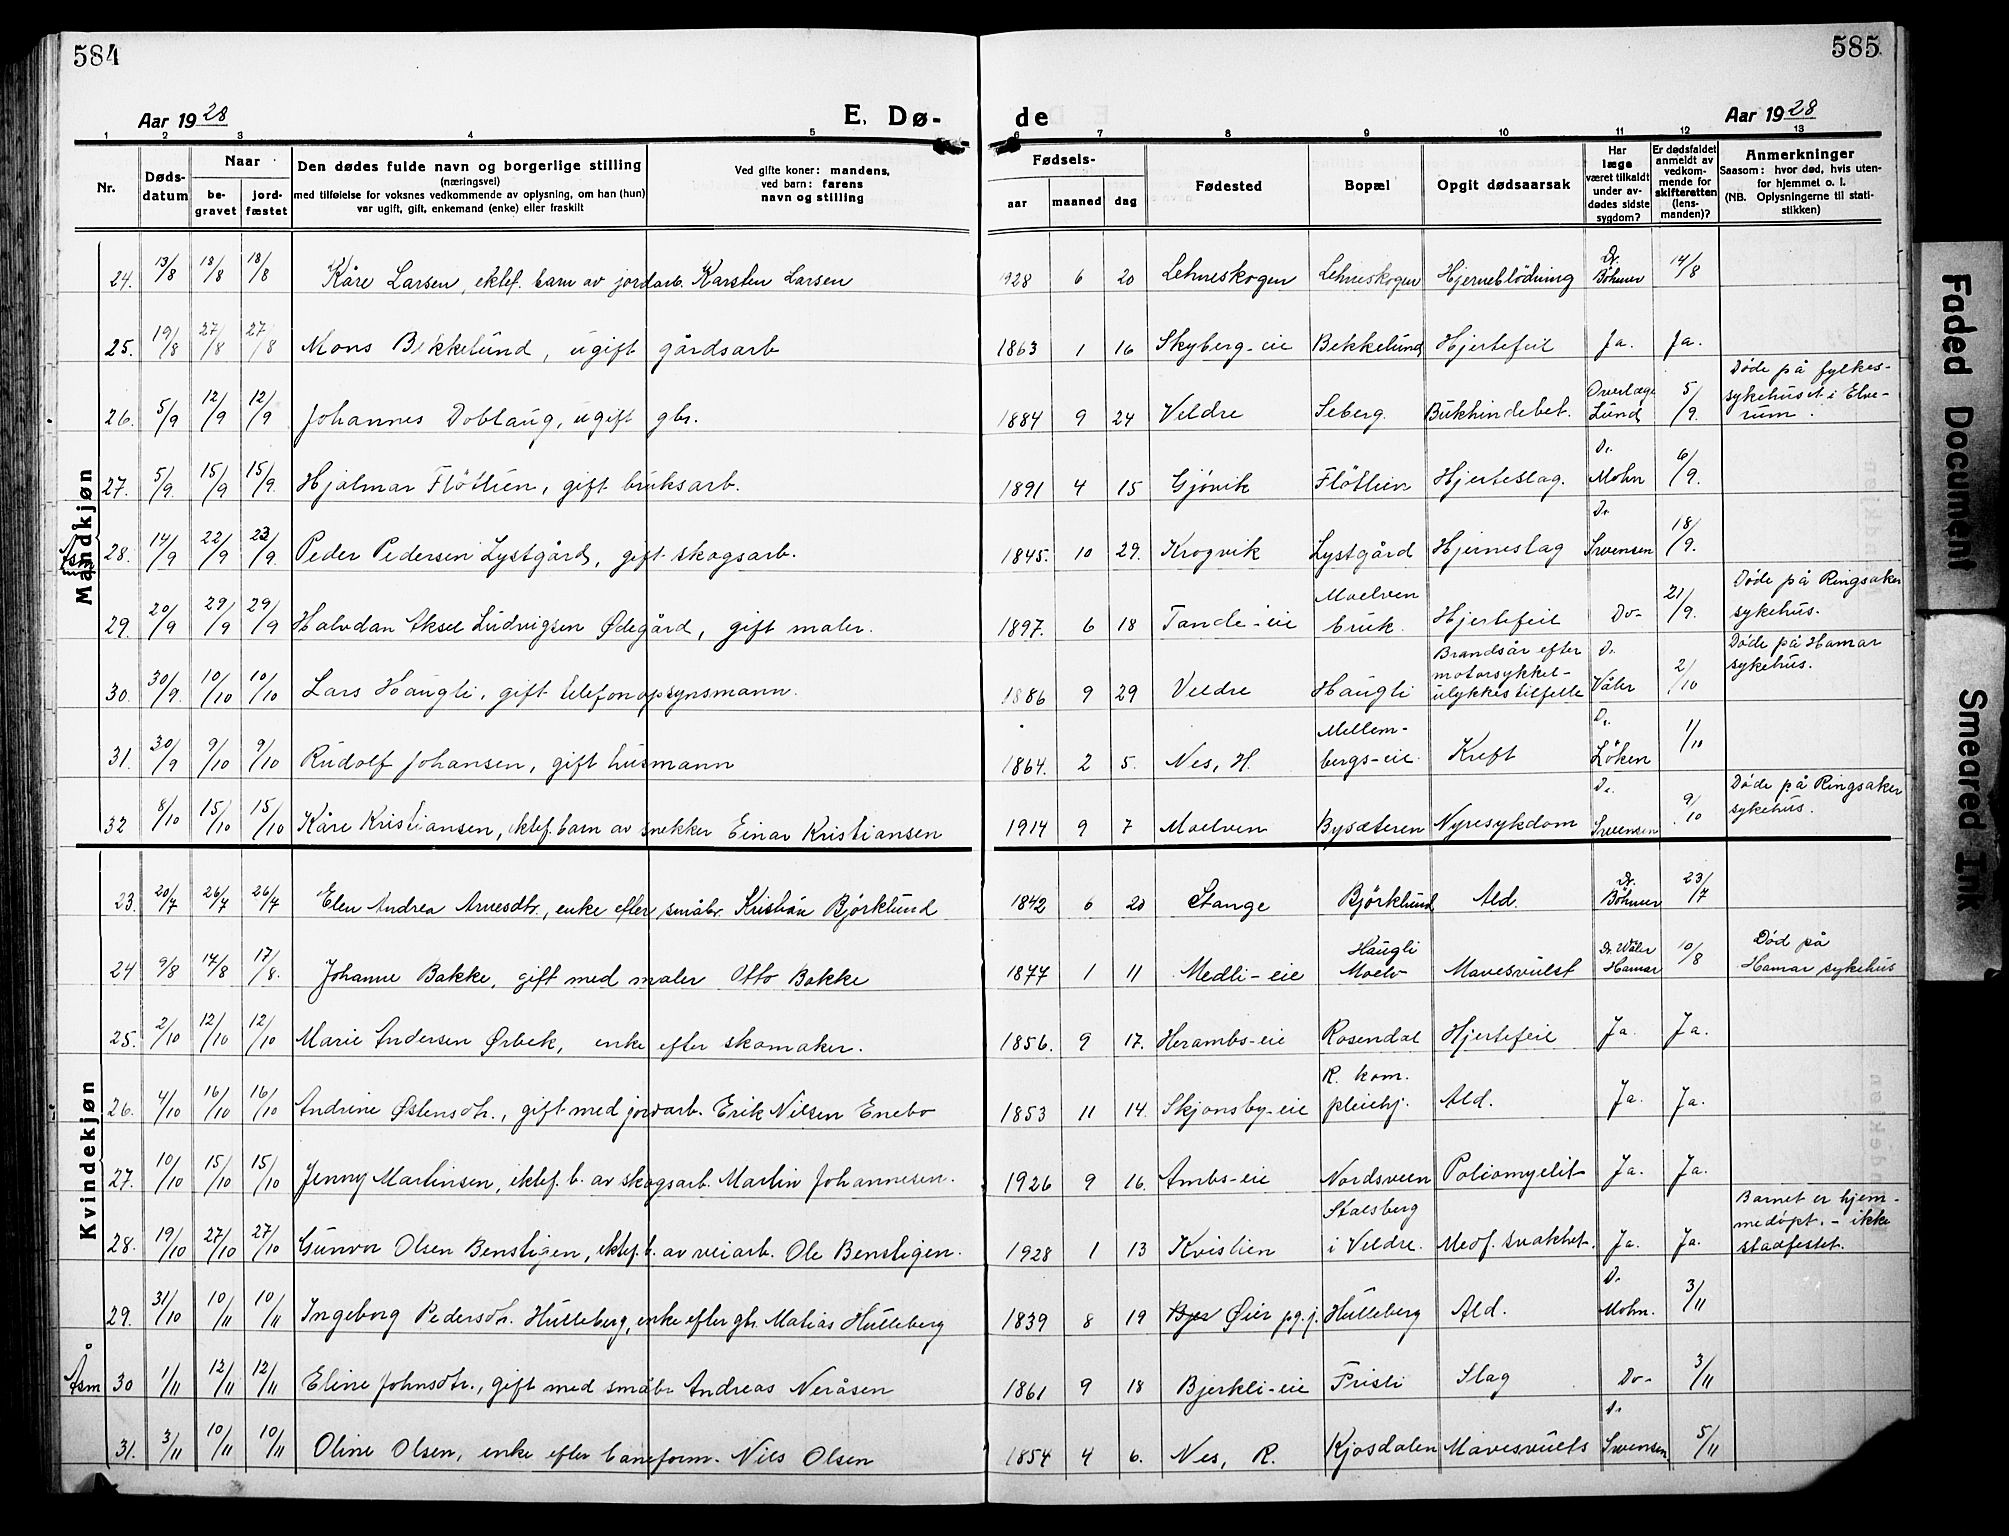 584
585
Aar 1928
E. Dø-
de
Aar 1928
1 2 3 4 5 6 7 8 9 10 11 12 13
Nr.
Døds-
datum
Naar
be-
gravet
jord-
fæstet
Den dødes fulde navn og borgerlige stilling
(næringsvei)
med tilføielse for voksnes vedkommende av oplysning, om han (hun)
var ugift, gift, enkemand (enke) eller fraskilt
Ved gifte koner: mandens,
ved barn: farens
navn og stilling
Fødsels-
aar maaned dag
Fødested
Bopæl
Opgit dødsaarsak
Har
læge
været tilkaldt
under av-
dødes sidste
sygdom?
Er dødsfaldet
anmeldt av
vedkom-
mende for
skifteretten
(lens-
manden)?
Anmerkninger
Saasom: hvor død, hvis uten-
for hjemmet o. l.
(NB. Oplysningerne til stati-
stikken)
Mandkjøn
24. 13/8 18/8 18/8 Kåre Larsen, ektef. barn av jordarb. Karsten Larsen 1928 6 20 Lehneskogen Lehneskogen Hjerneblödning Dr. Böhmer 14/8
25. 19/8 27/8 27/8 Mons Bekkelund, ugift gårdsarb 1863 1 16 Skyberg-eie Bekkelund Hjertefeil Ja. Ja.
26. 5/9 12/9 12/9 Johannes Doblaug, ugift gbr. 1884 9 24 Veldre Seberg. Bukhindebet. Overlæge Lund 5/9. Døde på fylkes-
sykehuset i Elve-
rum.
27. 5/9. 15/9 15/9. Hjalmar Fløtlien, gift bruksarb. 1891 4 15 Gjövik Fløtlien Hjerteslag. Dr Mohn 6/9.
28. 14/9 22/9 23/9. Peder Pedersen Lystgård, gift skogsarb. 1845. 10 29. Krogvik Lystgård Hjerneslag Dr Svensen 18/9.
29. 20/9 29/9 29/9 Halvdan Aksel Ludvigsen Ødegård, gift maler. 1897. 6 18 Tande-eie Moelven bruk. Hjertefeil Do- 21/9. Døde på Ringsaker
sykehus.
30. 30/9. 10/10 10/10 Lars Haugli, gift telefonopsynsmann. 1886 9 29 Veldre Haugli Brandsår efter
motorsykkel-
ulykkestilfelle Dr Våler 2/10 Døde på Hamar
sykehus.
31. 30/9 9/10 9/10 Rudolf Johansen, gift husmann 1864. 2 5. Nes, H. Mellem-
bergs-eie Kreft Dr. Löken 1/10
32 8/10 15/10 15/10 Kåre Kristiansen, ektef. barn av snekker Einar Kristiansen 1914 9 7 Moelven Bysæteren Nyresykdom Dr. Svensen 9/10 Døde på Ringsaker
sykehus.
Kvindekjøn
23. 20/7 26/7 26/7 Elen Andrea Arnesdtr., enke efter småbr. Kristian Björklund 1842 6 20 Stange Bjørklund Ald. Dr. Böhmer 23/7
24 9/8 17/8 17/8. Johanne Bakke, gift med maler Otto Bakke 1877 1 11 Medli-eie Haugli Moelv Mavesvulst Dr. Wåler Hamar 10/8 Død på
Hamar sykehus
25. 2/10 12/10 12/10 Marie Andersen Ørbek, enke efter skomaker. 1856. 9 17. Herambs-eie Rosendal Hjertefeil Ja. Ja.
26. 4/10 16/10 16/10 Andrine Østensdtr., gift med jordarb. Erik Nilsen Enebo 1853 11 14. Skjønsby-eie R. kom.
pleiehj. Ald. Ja. Ja.
27. 10/10 15/10 15/10 Jenny Martinsen, ektef. b. av skogsarb. Martin Johannesen. 1926 9 16. Ambs-eie Nordsveen Poliomyelit Ja. Ja.
28. 19/10 27/10 27/10 Gunvor Olsen Benstigen, ektef. b. av veiarb. Ole Benstigen. 1928 1 13 Kvislien Stalsberg
i Veldre. Medf. svakhet. Ja. Ja. Barnet er hjem-
medöpt. - ikke
stadfestet.
29. 31/10 10/11 10/11 Ingeborg Pedersdtr. Hulleberg, enke efter gbr. Matias Hulleberg 1839 8 19 Øier pg.j. Hulleberg Ald. Dr Mohn. 3/11
Åsm 30 1/11 12/11 12/11 Eline Johnsdtr., gift med småbr Andreas Neråsen 1861 9 18 Bjerkli-eie Fristi Slag Do- 3/11
31. 3/11 10/11 10/11 Oline Olsen, enke efter baneform. Nils Olsen 1854 4 6. Nes, R. Kjosdalen Mavesvulst Dr Svensen 5/11
Faded Document
Smeared Ink